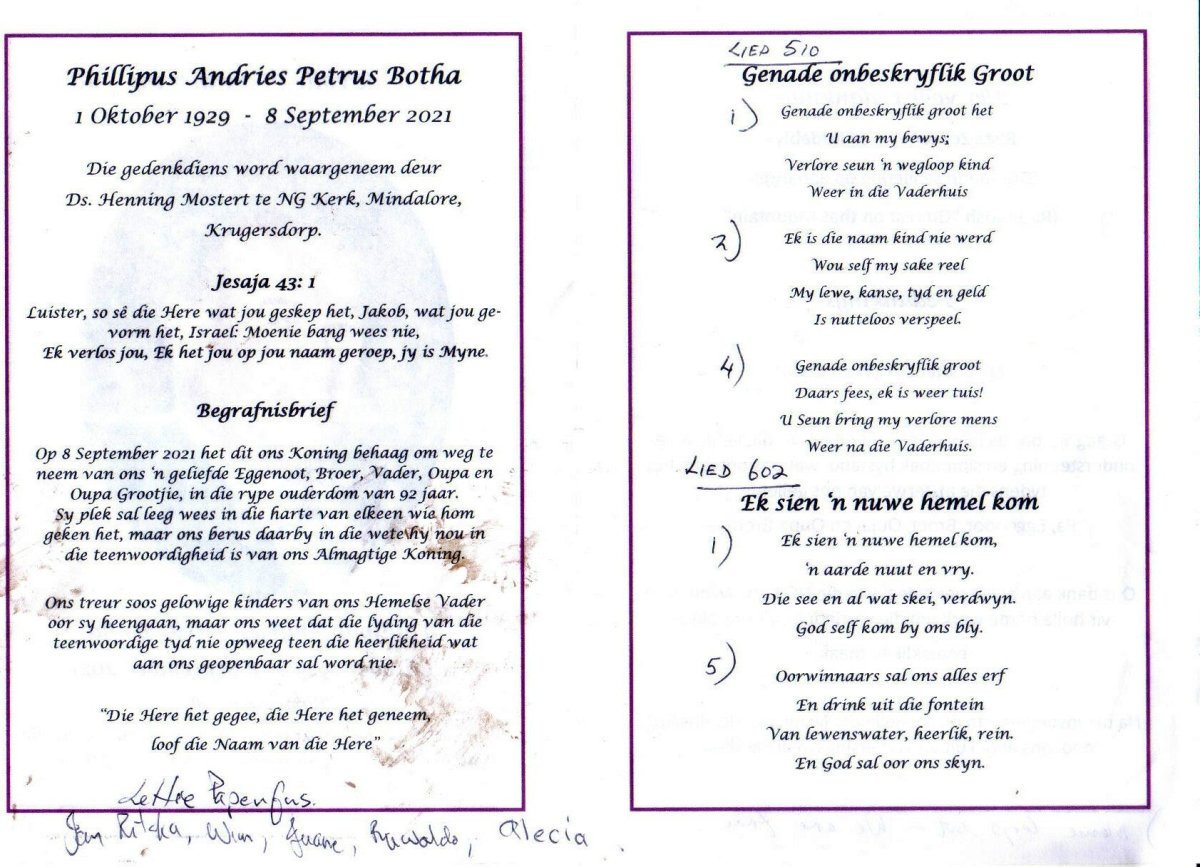 Phillipus Andries Petrus Botha
1 Oktober 1929 - 8 September 2021
Die gedenkdiens word waargeneem deur
Ds. Henning Mostert te NG Kerk, Mindalore,
Krugersdorp.
Jesaja 43: 1
Luister, so sê die Here wat jou geskep het, Jakob, wat jou ge-
vorm het, Israel: Moenie bang wees nie,
Ek verlos jou, Ek het jou op jou naam geroep, jy is Myne.
Begrafnisbrief
Op 8 September 2021 het dit ons Koning behaag om weg te
neem van ons 'n geliefde Eggenoot, Broer, Vader, Oupa en
Oupa Grootjie, in die rype ouderdom van 92 jaar.
Sy plek sal leeg wees in die harte van elkeen wie hom
geken het, maar ons berus daarby in die wete hy nou in
die teenwoordigheid is van ons Almagtige Koning.
Ons treur soos gelowige kinders van ons Hemelse Vader
oor sy heengaan, maar ons weet dat die lyding van die
teenwoordige tyd nie opweeg teen die heerlikheid wat
aan ons geopenbaar sal word nie.
"Die Here het gegee, die Here het geneem,
loof die Naam van die Here"
Lettie Papenfus.
Wim,
Alecia
LIED 510
Genade onbeskryflik Groot
1) Genade onbeskryflik groot het
U aan my bewys;
Verlore seun 'n wegloop kind
Weer in die Vaderhuis
2) Ek is die naam kind nie werd
Wou self my sake reel
My lewe, kanse, tyd en geld
Is nutteloos verspeel.
4) Genade onbeskryflik groot
Daars fees, ek is weer tuis!
U Seun bring my verlore mens
Weer na die Vaderhuis.
LIED 602
Ek sien 'n nuwe hemel kom
1) Ek sien 'n nuwe hemel kom,
'n aarde nuut en vry.
Die see en al wat skei, verdwyn.
God self kom by ons bly.
5) Oorwinnaars sal ons alles erf
En drink uit die fontein
Van lewenswater, heerlik, rein.
En God sal oor ons skyn.